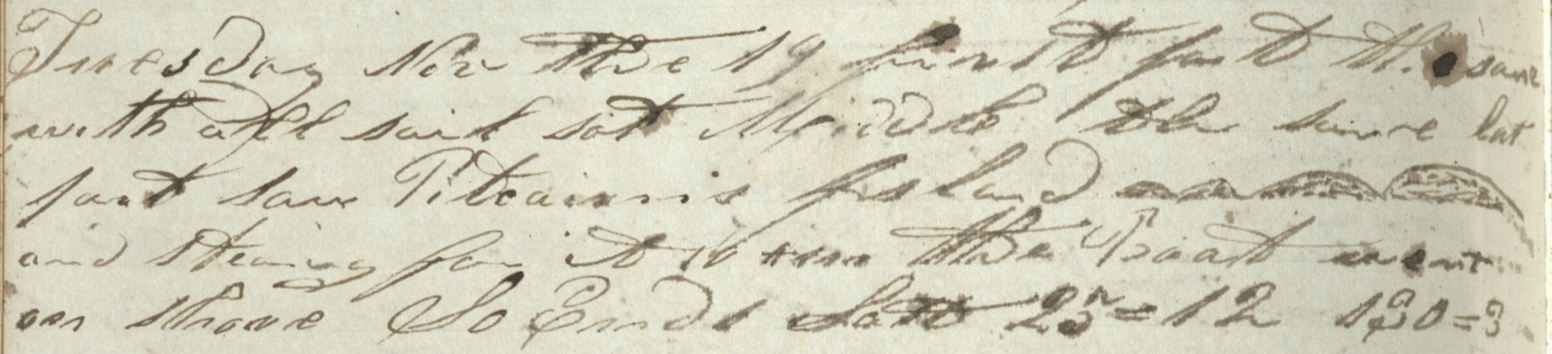 Tuesday Nov the 19 first part the same
with all sail sot Middle the same lat
part saw Pitcairns Island
and stearing for it 10 am the Boat went
on shore So Ends Latt 25=12 130=3